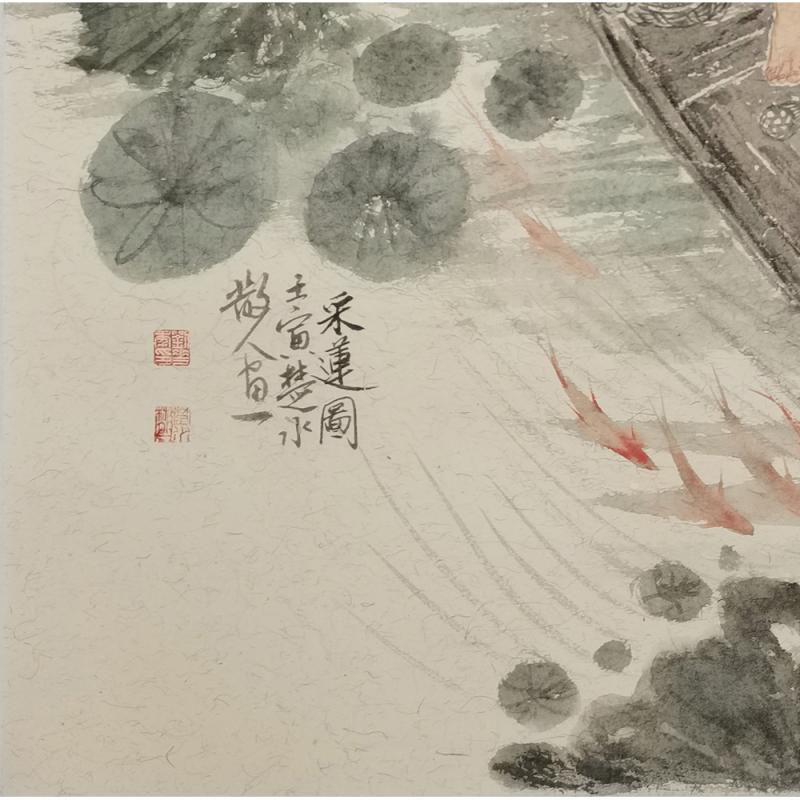 采蓮圖
壬寅楚水
散人画一